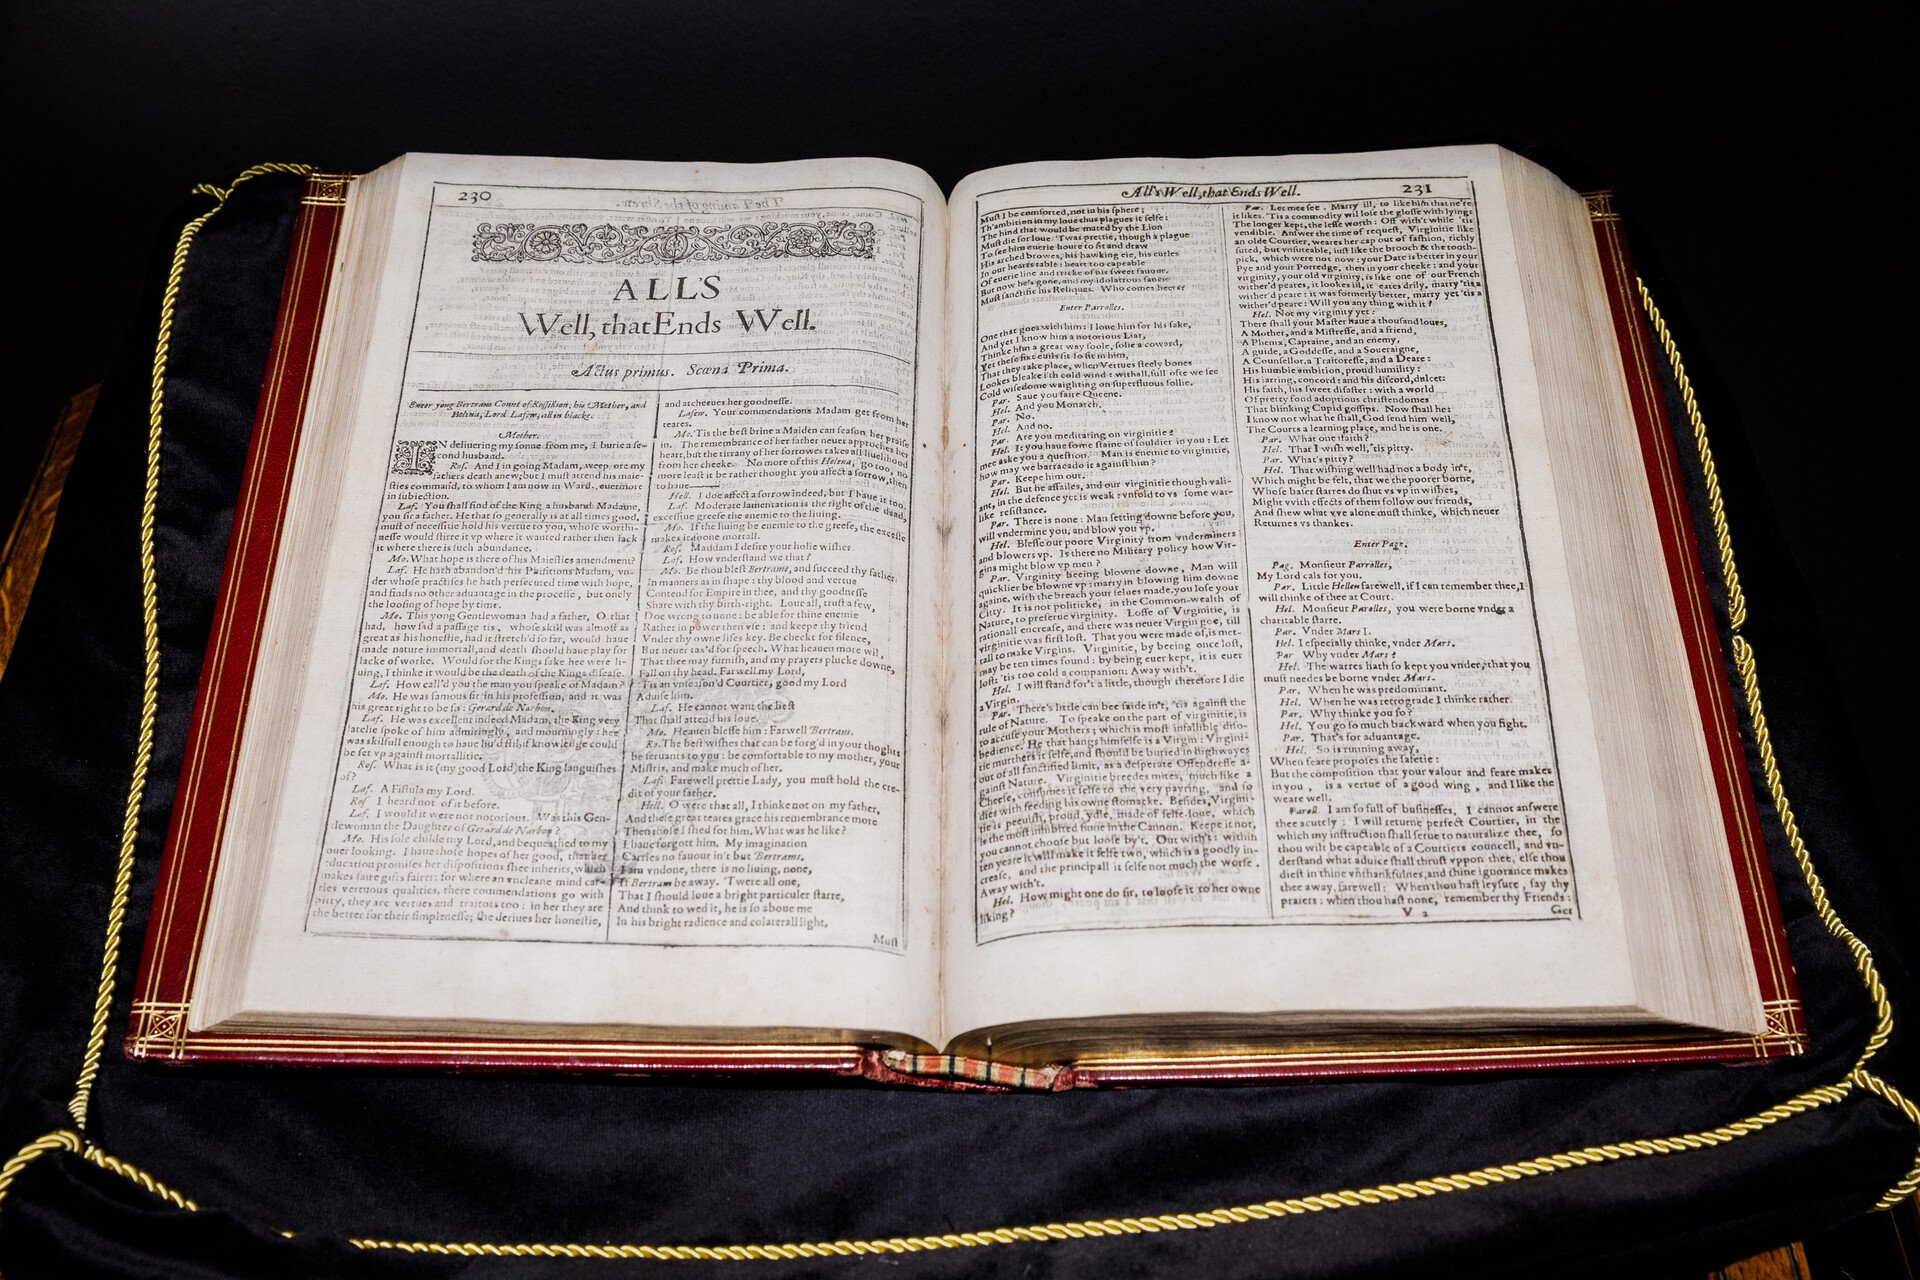 230
ALL'S
Well, that Ends Well.
Actus primus. Scœna Prima.
Enter yong Bertram Count of Rossillion, his Mother, and
Helena, Lord Lafew, all in blacke.
Mother.
IN deliuering my sonne from me, I burie a se-
cond husband.
Ros. And I in going Madam, weep ore my
fathers death anew; but I must attend his maie-
sties command, to whom I am now in Ward, euermore
in subiection.
Laf. You shall find of the King a husband Madame,
you sir a father. He that so generally is at all times good,
must of necessitie hold his vertue to you, whose worthi-
nesse would stirre it vp where it wanted rather then lack
it where there is such abundance.
Mo. What hope is there of his Maiesties amendment?
Laf. He hath abandon'd his Phisitions Madam, vn-
der whose practises he hath persecuted time with hope,
and finds no other aduantage in the processe, but onely
the loosing of hope by time.
Mo. This yong Gentlewoman had a father, O that
had, how sad a passage tis, whose skill was almost as
great as his honestie, had it stretch'd so far, would haue
made nature immortall, and death should haue play for
lacke of worke. Would for the Kings sake hee were li-
uing, I thinke it would be the death of the Kings disease.
Laf. How call'd you the man you speake of Madam?
Mo. He was famous sir in his profession, and it was
his great right to be so: Gerard de Narbon.
Laf. He was excellent indeed Madam, the King very
latelie spoke of him admiringly, and mourningly: hee
was skilfull enough to haue liu'd stil, if knowledge could
be set vp against mortallitie.
Ros. What is it (my good Lord) the King languishes
of?
Laf. A Fistula my Lord.
Ros. I heard not of it before.
Laf. I would it were not notorious. Was this Gen-
tlewoman the Daughter of Gerard de Narbon?
Mo. His sole childe my Lord, and bequeathed to my
ouer looking. I haue those hopes of her good, that her
education promises her dispositions shee inherits, which
makes faire gifts fairer: for where an vncleane mind car-
ries vertuous qualities, there commendations go with
pitty, they are vertues and traitors too: in her they are
the better for their simplenesse; she deriues her honestie,
and atcheeues her goodnesse.
Lafew. Your commendations Madam get from her
teares.
Mo. 'Tis the best brine a Maiden can season her praise
in. The remembrance of her father neuer approches her
heart, but the tirrany of her sorrowes takes all liuelihood
from her cheeke. No more of this Helena, go too, no
more least it be rather thought you affect a sorrow, then
to haue——
Hell. I doe affect a sorrow indeed, but I haue it too.
Laf. Moderate lamentation is the right of the dead,
excessiue greefe the enemie to the liuing.
Mo. If the liuing be enemie to the greefe, the excesse
makes it soone mortall.
Ros. Maddam I desire your holie wishes.
Laf. How vnderstand we that?
Mo. Be thou blest Bertrame, and succeed thy father
In manners as in shape: thy blood and vertue
Contend for Empire in thee, and thy goodnesse
Share with thy birth-right. Loue all, trust a few,
Doe wrong to none: be able for thine enemie
Rather in power then vse: and keepe thy friend
Vnder thy owne lifes key. Be checkt for silence,
But neuer tax'd for speech. What heauen more wil,
That thee may furnish, and my prayers plucke downe,
Fall on thy head. Farwell my Lord,
'Tis an vnseason'd Courtier, good my Lord
Aduise him.
Laf. He cannot want the best
That shall attend his loue.
Mo. Heauen blesse him: Farwell Bertram.
Ro. The best wishes that can be forg'd in your thoghts
be seruants to you: be comfortable to my mother, your
Mistris, and make much of her.
Laf. Farewell prettie Lady, you must hold the cre-
dit of your father.
Hell. O were that all, I thinke not on my father,
And these great teares grace his remembrance more
Then those I shed for him. What was he like?
I haue forgott him. My imagination
Carries no fauour in't but Bertrams.
I am vndone, there is no liuing, none,
If Bertram be away. 'Twere all one,
That I should loue a bright particuler starre,
And think to wed it, he is so aboue me
In his bright radience and colaterall light,
Must
All's Well, that Ends Well.
231
Must I be comforted, not in his sphere;
Th'ambition in my loue thus plagues it selfe:
The hind that would be mated by the Lion
Must die for loue. 'Twas prettie, though a plague
To see him euerie houre to sit and draw
His arched browes, his hawking eie, his curles
In our hearts table: heart too capeable
Of euerie line and tricke of his sweet fauour.
But now he's gone, and my idolatrous fancie
Must sanctifie his Reliques. Who comes heere?
Enter Parrolles.
One that goes with him: I loue him for his sake,
And yet I know him a notorious Liar,
Thinke him a great way foole, solie a coward,
Yet these fixt euils sit so fit in him,
That they take place, when Vertues steely bones
Lookes bleake i'th cold wind: withall, full ofte we see
Cold wisedome waighting on superfluous follie.
Par. Saue you faire Queene.
Hel. And you Monarch.
Par. No.
Hel. And no.
Par. Are you meditating on virginitie?
Hel. I: you haue some staine of souldier in you: Let
mee aske you a question. Man is enemie to virginitie,
how may we barracado it against him?
Par. Keepe him out.
Hel. But he assailes, and our virginitie though vali-
ant, in the defence yet is weak: vnfold to vs some war-
like resistance.
Par. There is none: Man setting downe before you,
will vndermine you, and blow you vp.
Hel. Blesse our poore Virginity from vnderminers
and blowers vp. Is there no Military policy how Vir-
gins might blow vp men?
Par. Virginity beeing blowne downe, Man will
quicklier be blowne vp: marry in blowing him downe
againe, with the breach your selues made, you lose your
Citty. It is not politicke, in the Common-wealth of
Nature, to preserue virginity. Losse of Virginitie, is
rationall encrease, and there was neuer Virgin goe, till
virginitie was first lost. That you were made of, is met-
tall to make Virgins. Virginitie, by beeing once lost,
may be ten times found: by being euer kept, it is euer
lost: 'tis too cold a companion: Away with't.
Hel. I will stand for't a little, though therefore I die
a Virgin.
Par. There's little can bee saide in't, 'tis against the
rule of Nature. To speake on the part of virginitie, is
to accuse your Mothers; which is most infallible diso-
bedience. He that hangs himselfe is a Virgin: Virgini-
tie murthers it selfe, and should be buried in highwayes
out of all sanctified limit, as a desperate Offendresse a-
gainst Nature. Virginitie breedes mites, much like a
Cheese, consumes it selfe to the very payring, and so
dies with feeding his owne stomacke. Besides, Virgini-
tie is peeuish, proud, ydle, made of selfe-loue, which
is the most inhibited sinne in the Cannon. Keepe it not,
you cannot choose but loose by't. Out with't: within
ten yeare it will make it selfe two, which is a goodly in-
crease, and the principall it selfe not much the worse.
Away with't.
Hel. How might one do sir, to loose it to her owne
liking?
Par. Let mee see. Marry ill, to like him that ne're
it likes. 'Tis a commodity wil lose the glosse with lying:
The longer kept, the lesse worth: Off with't while 'tis
vendible. Answer the time of request, Virginitie like
an olde Courtier, weares her cap out of fashion, richly
suted, but vnsuteable, iust like the brooch & the tooth-
pick, which were not now: your Date is better in your
Pye and your Porredge, then in your cheeke: and your
virginity, your old virginity, is like one of our French
wither'd peares, it lookes ill, it eates drily, marry 'tis a
wither'd peare: it was formerly better, marry yet 'tis a
wither'd peare: Will you any thing with it?
Hel. Not my virginity yet:
There shall your Master haue a thousand loues,
A Mother, and a Mistresse, and a friend,
A Phenix, Captaine, and an enemy,
A guide, a Goddesse, and a Soueraigne,
A Counsellor, a Traitoresse, and a Deare:
His humble ambition, proud humility:
His iarring, concord: and his discord, dulcet:
His faith, his sweet disaster: with a world
Of pretty fond adoptious christendomes
That blinking Cupid gossips. Now shall he:
I know not what he shall, God send him well,
The Courts a learning place, and he is one.
Par. What one ifaith?
Hel. That I wish well, 'tis pitty.
Par. What's pitty?
Hel. That wishing well had not a body in't,
Which might be felt, that we the poorer borne,
Whose baser starres do shut vs vp in wishes,
Might with effects of them follow our friends,
And shew what we alone must thinke, which neuer
Returnes vs thankes.
Enter Page.
Pag. Monsieur Parrolles,
My Lord cals for you.
Par. Little Hellen farewell, if I can remember thee, I
will thinke of thee at Court.
Hel. Monsieur Parolles, you were borne vnder a
charitable starre.
Par. Vnder Mars I.
Hel. I especially thinke, vnder Mars.
Par. Why vnder Mars?
Hel. The warres hath so kept you vnder, that you
must needes be borne vnder Mars.
Par. When he was predominant.
Hel. When he was retrograde I thinke rather.
Par. Why thinke you so?
Hel. You go so much backward when you fight.
Par. That's for aduantage.
Hel. So is running away,
When feare proposes the safetie:
But the composition that your valour and feare makes
in you, is a vertue of a good wing, and I like the
weare well.
Paroll. I am so full of businesses, I cannot answere
thee acutely: I will returne perfect Courtier, in the
which my instruction shall serue to naturalize thee, so
thou wilt be capeable of a Courtiers councell, and vn-
derstand what aduice shall thrust vppon thee, else thou
diest in thine vnthankfulnes, and thine ignorance makes
thee away, farewell: When thou hast leysure, say thy
praiers: when thou hast none, remember thy Friends:
V 2
Get